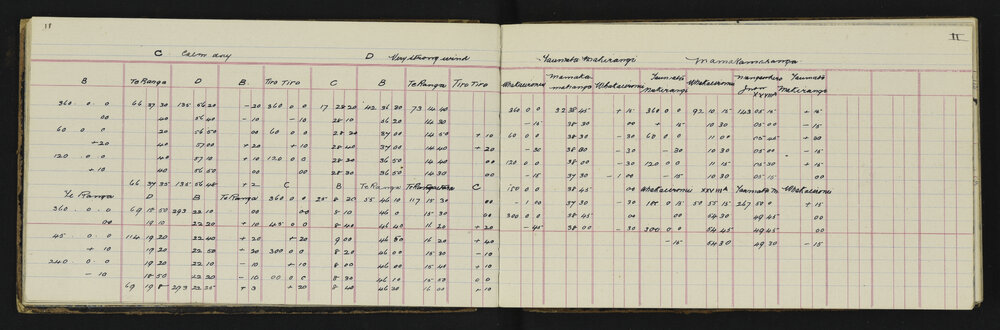 11
II
C Calm day D Very strong wind Taumata Makiranga Mamakamaranga
B Te Ranga D B Tiro Tiro C B Te Ranga Tiro Tiro
360 0 0 66 37 30 135 56 20 - 20 360 0 0 17 28 20 42 36 20 73 14 40
00 40 56 40 - 10 - 10 28 10 36 20 14 30
60 0 0 20 56 50 00 60 0 0 28 20 37 00 14 50 + 10
+ 20 40 57 00 + 20 + 10 28 40 37 00 14 40 + 20
120 0 0 40 57 10 + 10 120 0 0 28 30 36 50 14 40 00
+ 10 40 56 50 00 00 28 30 36 50 14 30 00
66 37 35 135 56 48 + 2 C B Te Ranga C
Te Ranga D B Te Ranga 360 0 0 25 8 20 55 46 10 117 15 30 00
360 0 0 69 18 50 293 22 10 00 00 8 10 46 0 15 30
00 19 10 22 20 + 10 45 0 0 8 40 46 40 16 20 + 20
45 0 0 114 19 20 22 40 + 20 + 20 9 00 46 50 16 20 + 40
+ 10 19 20 22 50 + 20 300 0 0 8 20 46 00 15 30 - 10
240 0 0 19 20 22 10 - 10 + 10 8 00 46 00 15 40 + 10
- 10 18 50 22 20 - 10 00 0 0 8 30 46 10 15 50 0 0
69 19 8 293 22 25 + 3 + 20 8 40 46 20 16 00 + 10
Whakaeronui Mamaka maranga Whakaeronui Taumata Makiranga Whakaeronui Taumata Makiranga
360 00 0 32 38 45 + 15 360 0 0 92 10 15 143 05 15 + 15
- 15 38 30 00 - 15 10 30 05 00 - 15
60 0 0 38 30 - 30 60 0 0 11 00 05 45 + 00
- 30 38 30 - 30 - 30 10 30 05 00 - 15
120 0 0 38 00 - 30 120 0 0 11 15 05 30 + 15
- 15 37 30 - 1 00 - 15 10 30 05 15 00
180 0 0 38 45 00 Whakaeronui XXVIII Taumata Whakaeronui
- 1 00 37 30 - 30 180 0 0 50 55 15 267 50 0 + 15
300 0 0 38 45 00 00 54 30 49 45 00
- 45 38 00 - 30 300 0 0 54 45 49 45 00
- 15 54 30 49 30 - 15